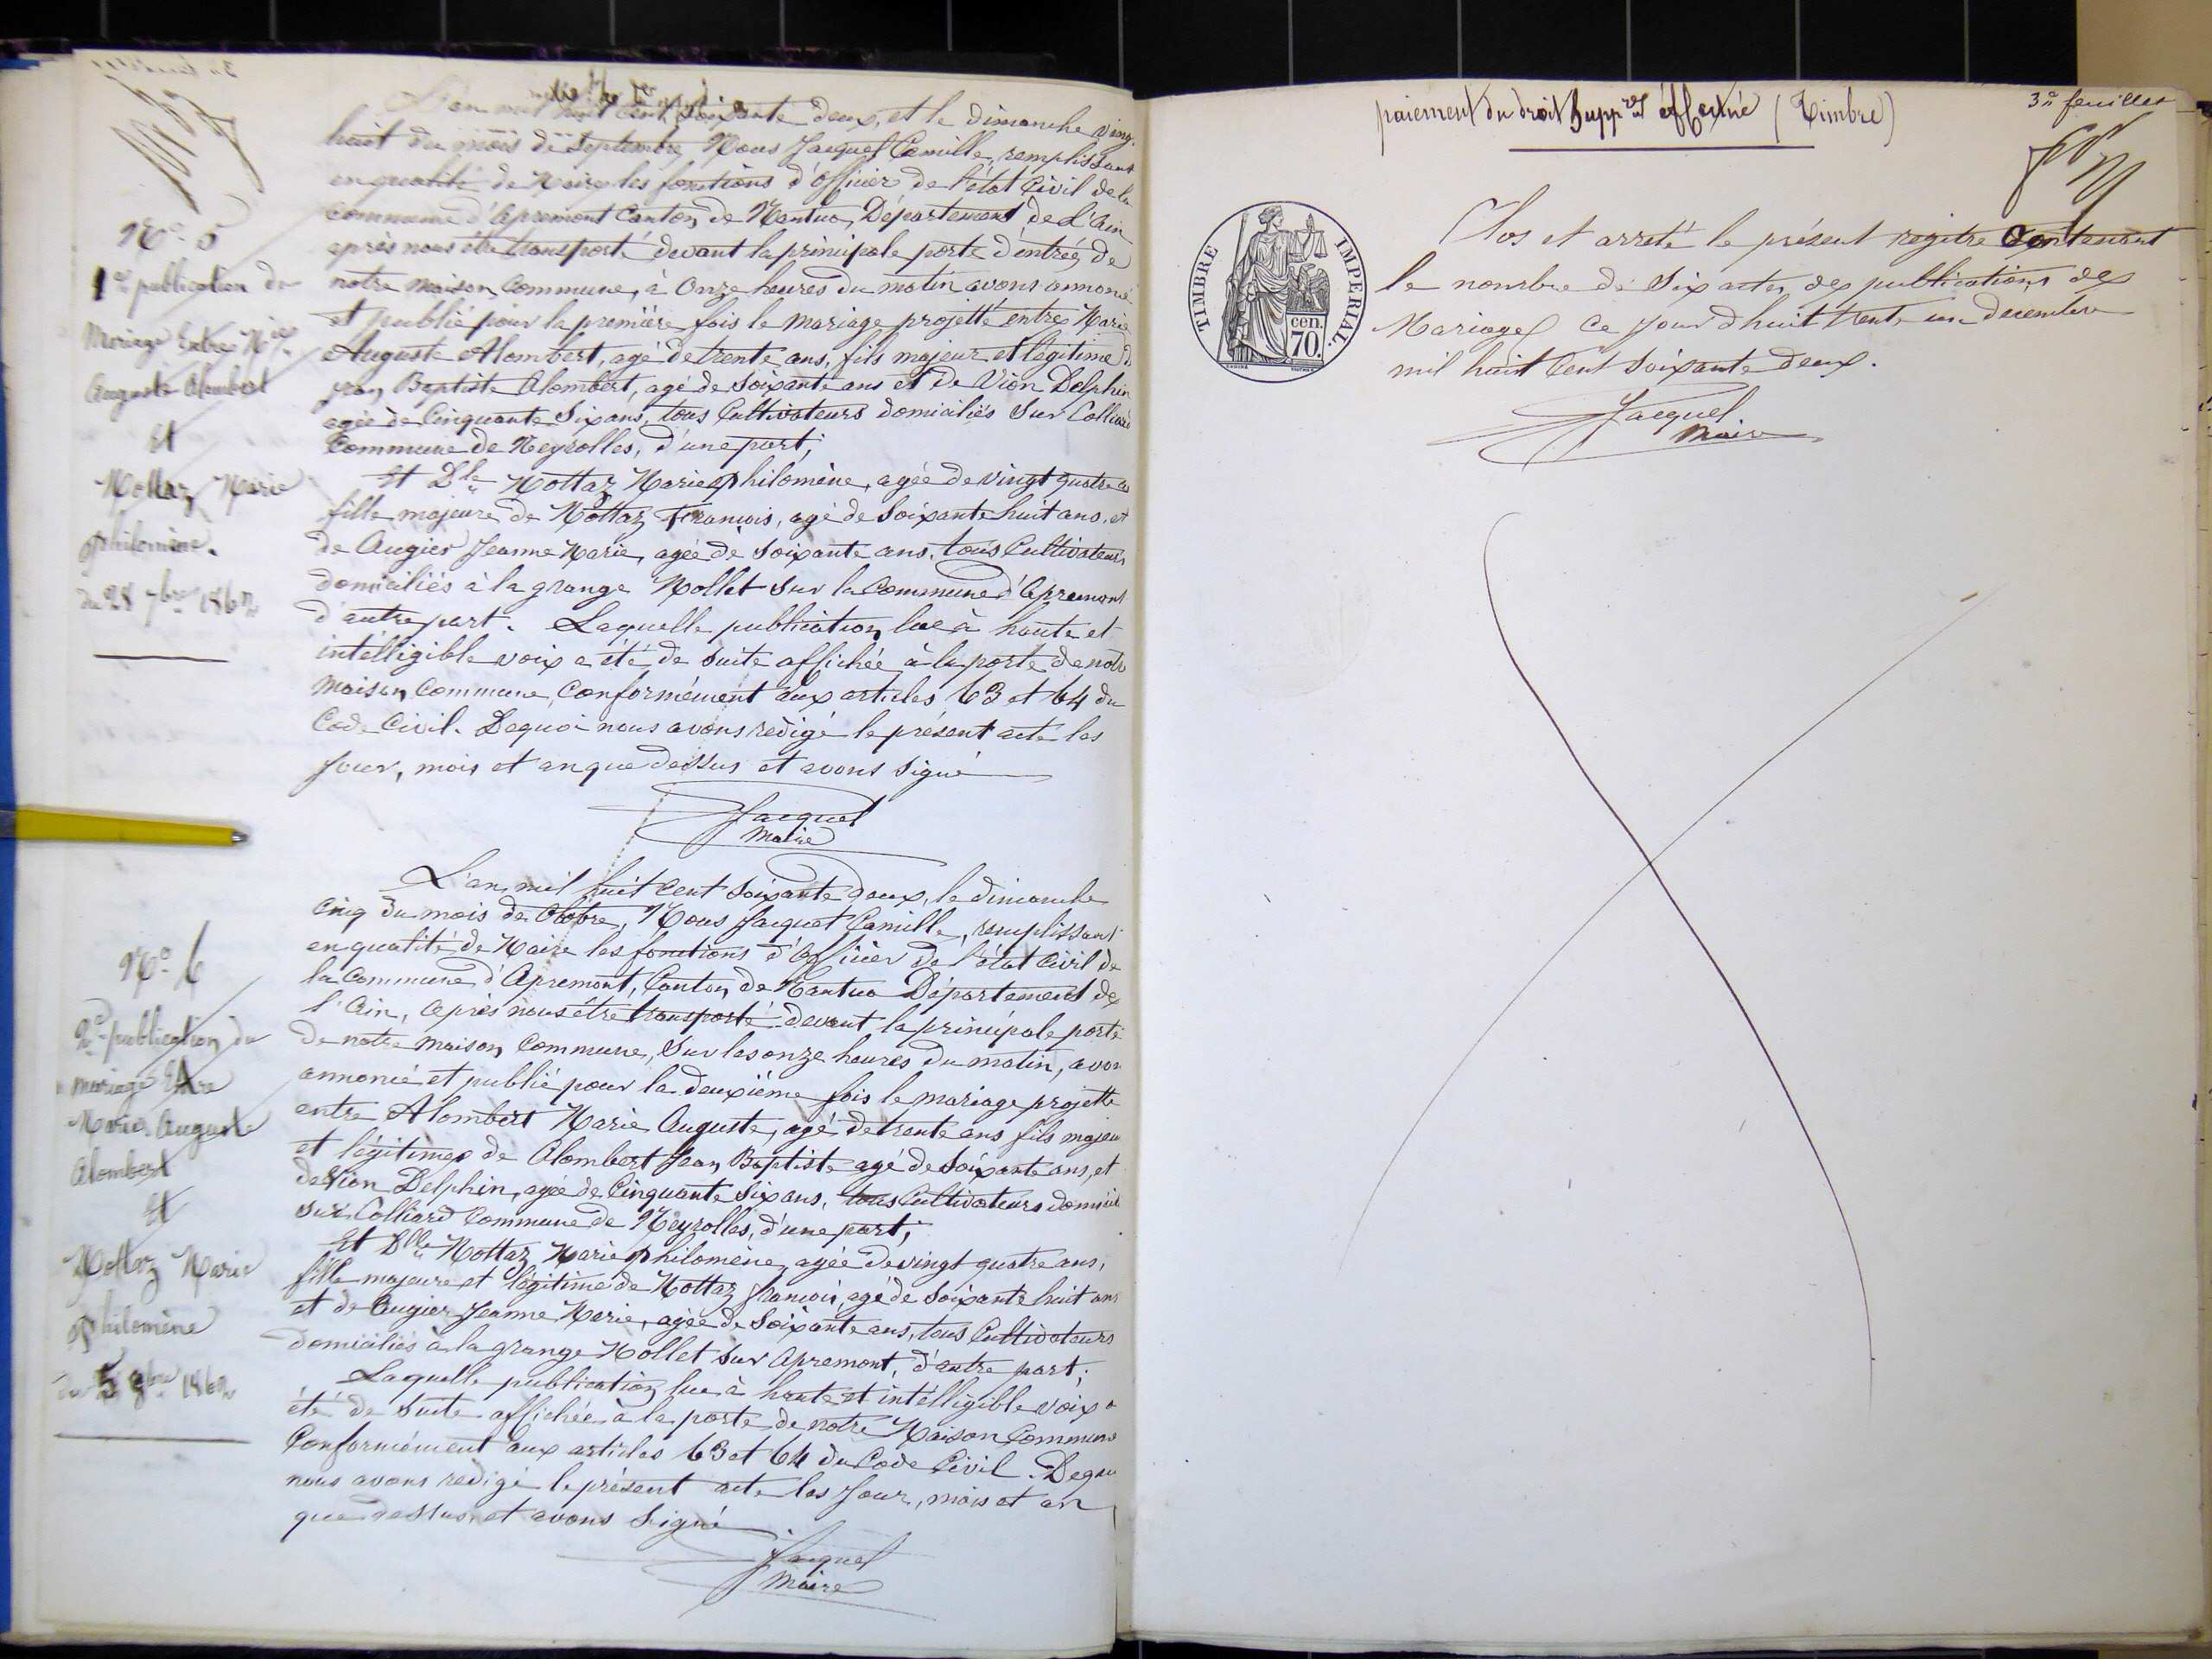 No 5
1ere publication du
Mariage Entre Mie
Auguste Alombert
Et
Nottaz Marie
philomène.
du 28 7bre 1862
L'an mil huit Cent Soixante deux, et le dimanche Vingt
huit du mois de Septembre Nous Jacquet Camille, remplissant
en qualité de Maire les fonctions d'officier de l'état Civil de la
Commune d'Apremont Canton de Nantua, Département de L'Ain
après nous être transporté devant la principale porte d'entrée de
notre maison Commune, à Onze heures du matin avons annoncé
et publié pour la première fois le Mariage projetté entre Marie
Auguste Alombert, agé de trente ans, fils majeur et légitime de
Jean Baptiste Alombert, agé de Soixante ans et de Vion Delphin
agée de Cinquante Six ans, tous Cultivateurs domiciliés Sur Colliard
Commune de Neyrolles, d'une part;
Et Dlle Nottaz Marie philomène, agée de vingt quatre a
fille majeure de Nottaz François, agé de Soixante huit ans, et
de Augier Jeanne Marie, agée de Soixante ans, tous Cultivateurs
domiciliés à la grange Mollet Sur la Commune d'Apremont
d'autre part. Laquelle publication lue à haute et
intélligible voix a été de Suite affichée à la porte de notre
Maison Commune, Conformément aux articles 63 et 64 du
Code Civil. Dequoi nous avons rédigé le présent acte les
jour, mois et an que dessus et avons Signé
Jacquet
Maire
No 6
2e publication du
mariage Entre
Marie Auguste
Alombert
Et
Nottaz Marie
philomène
du 5 8bre 1862
L'an mil huit Cent Soixante deux, le dimanche
Cinq du mois de Octobre, Nous Jacquet Camille, remplissant
en qualité de Maire les fonctions d'officier de l'état Civil de
la Commune d'Apremont, Canton de Nantua Département de
l'Ain, après nous être transporté devant la principale porte
de notre maison Commune, Sur les onze heures du matin, avon
annoncé et publié pour la deuxième fois le mariage projetté
entre Alombert Marie Auguste, agé de trente ans fils majeu
et légitime de Alombert Jean Baptiste agé de Soixante ans, et
de Vion Delphin, agée de Cinquante Six ans, tous Cultivateurs domicil
sur Colliard Commune de Neyrolles, d'une part;
Et Dlle Nottaz Marie philomène, agée de vingt quatre ans,
fille majeure et légitime de Nottaz françois, agé de Soixante huit ans
et de Augier Jeanne Marie, agée de Soixante ans, tous Cultivateurs
domiciliés à la grange Mollet Sur Apremont, d'autre part;
Laquelle publication lue à haute et intélligible voix a
été de Suite affichée à la porte de notre Maison Commune
Conformément aux articles 63 et 64 du Code Civil. Dequ
nous avons redigé le présent acte les Jour, mois et an
que dessus, et avons Signé
Jacquet
Maire
paiement du droit Suppre éffectué (Timbre)
3e feuillet
TIMBRE IMPERIAL.
cen.
70.
Clos et arreté le présent registre Contenant
le nombre de Six actes des publications des
Mariages Ce Jour d'huit trente un decembre
mil huit Cent Soixante deux.
Jacquet
Maire